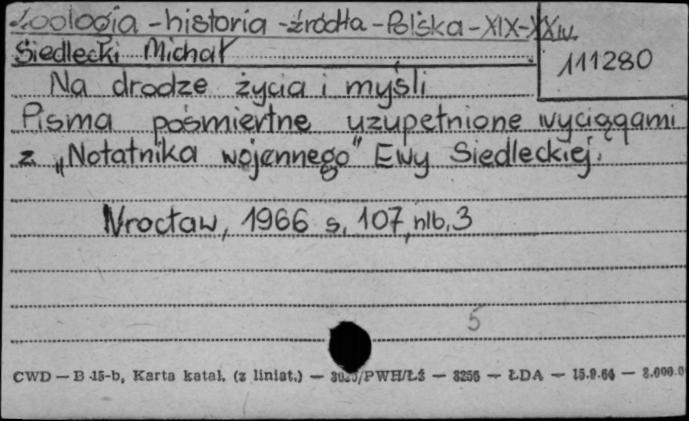 Zoologia - historia - źródła - Polska - XIX-XXw.
Siedlecki Michał
111280
Na drodze życia i myśli
Pisma pośmiertne uzupełnione wyciągami
z „Notatnika wojennego" Ewy Siedleckiej.
Wrocław, 1966 s. 107, nlb. 3
5
CWD — B-15-b, Karta katal. (z liniat.) — /PWH/ŁŻ — 3256 — ŁDA — 15.9.64 —